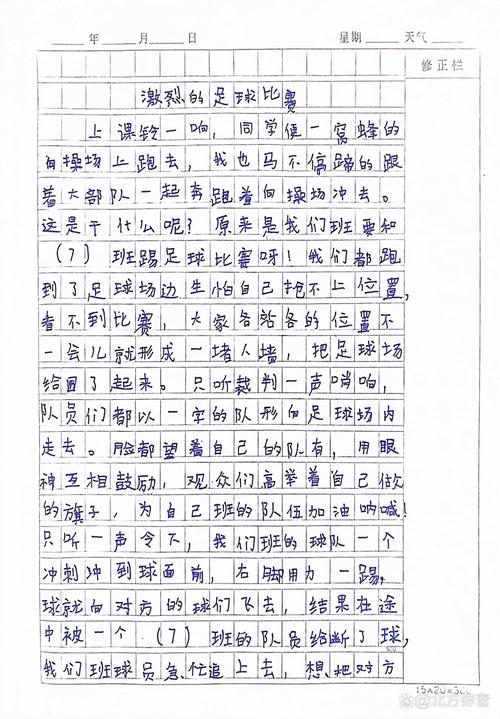 年 月 日 星期 天气
修正栏
激烈的足球比赛
上课铃一响，同学便一窝蜂的
向操场上跑去，我也马不停蹄的跟
着大部队一起奔跑着向操场冲去。
这是干什么呢？原来是我们班要和
（7）班踢足球比赛呀！我们都跑
到了足球场边生怕自己抢不上位置，
看不到比赛，大家各站各的位置不
一会儿就形成一堵人墙，把足球场
给围了起来。只听裁判一声哨响，
队员们都以一字的队形向足球场内
走去。脸都望着自己的队有，用眼
神互相鼓励，观众们高举着自己做
的旗子，为自己班的队伍加油呐喊！
只听一声令下，我们班的球队一个
冲刺冲到球面前，右脚用力一踢，
球就向对方的球们飞去，结果在途
中被一个（7）班的队员给断了球，
我们班球员急忙追上去，想把对方
15×20=300
@北万弥斋